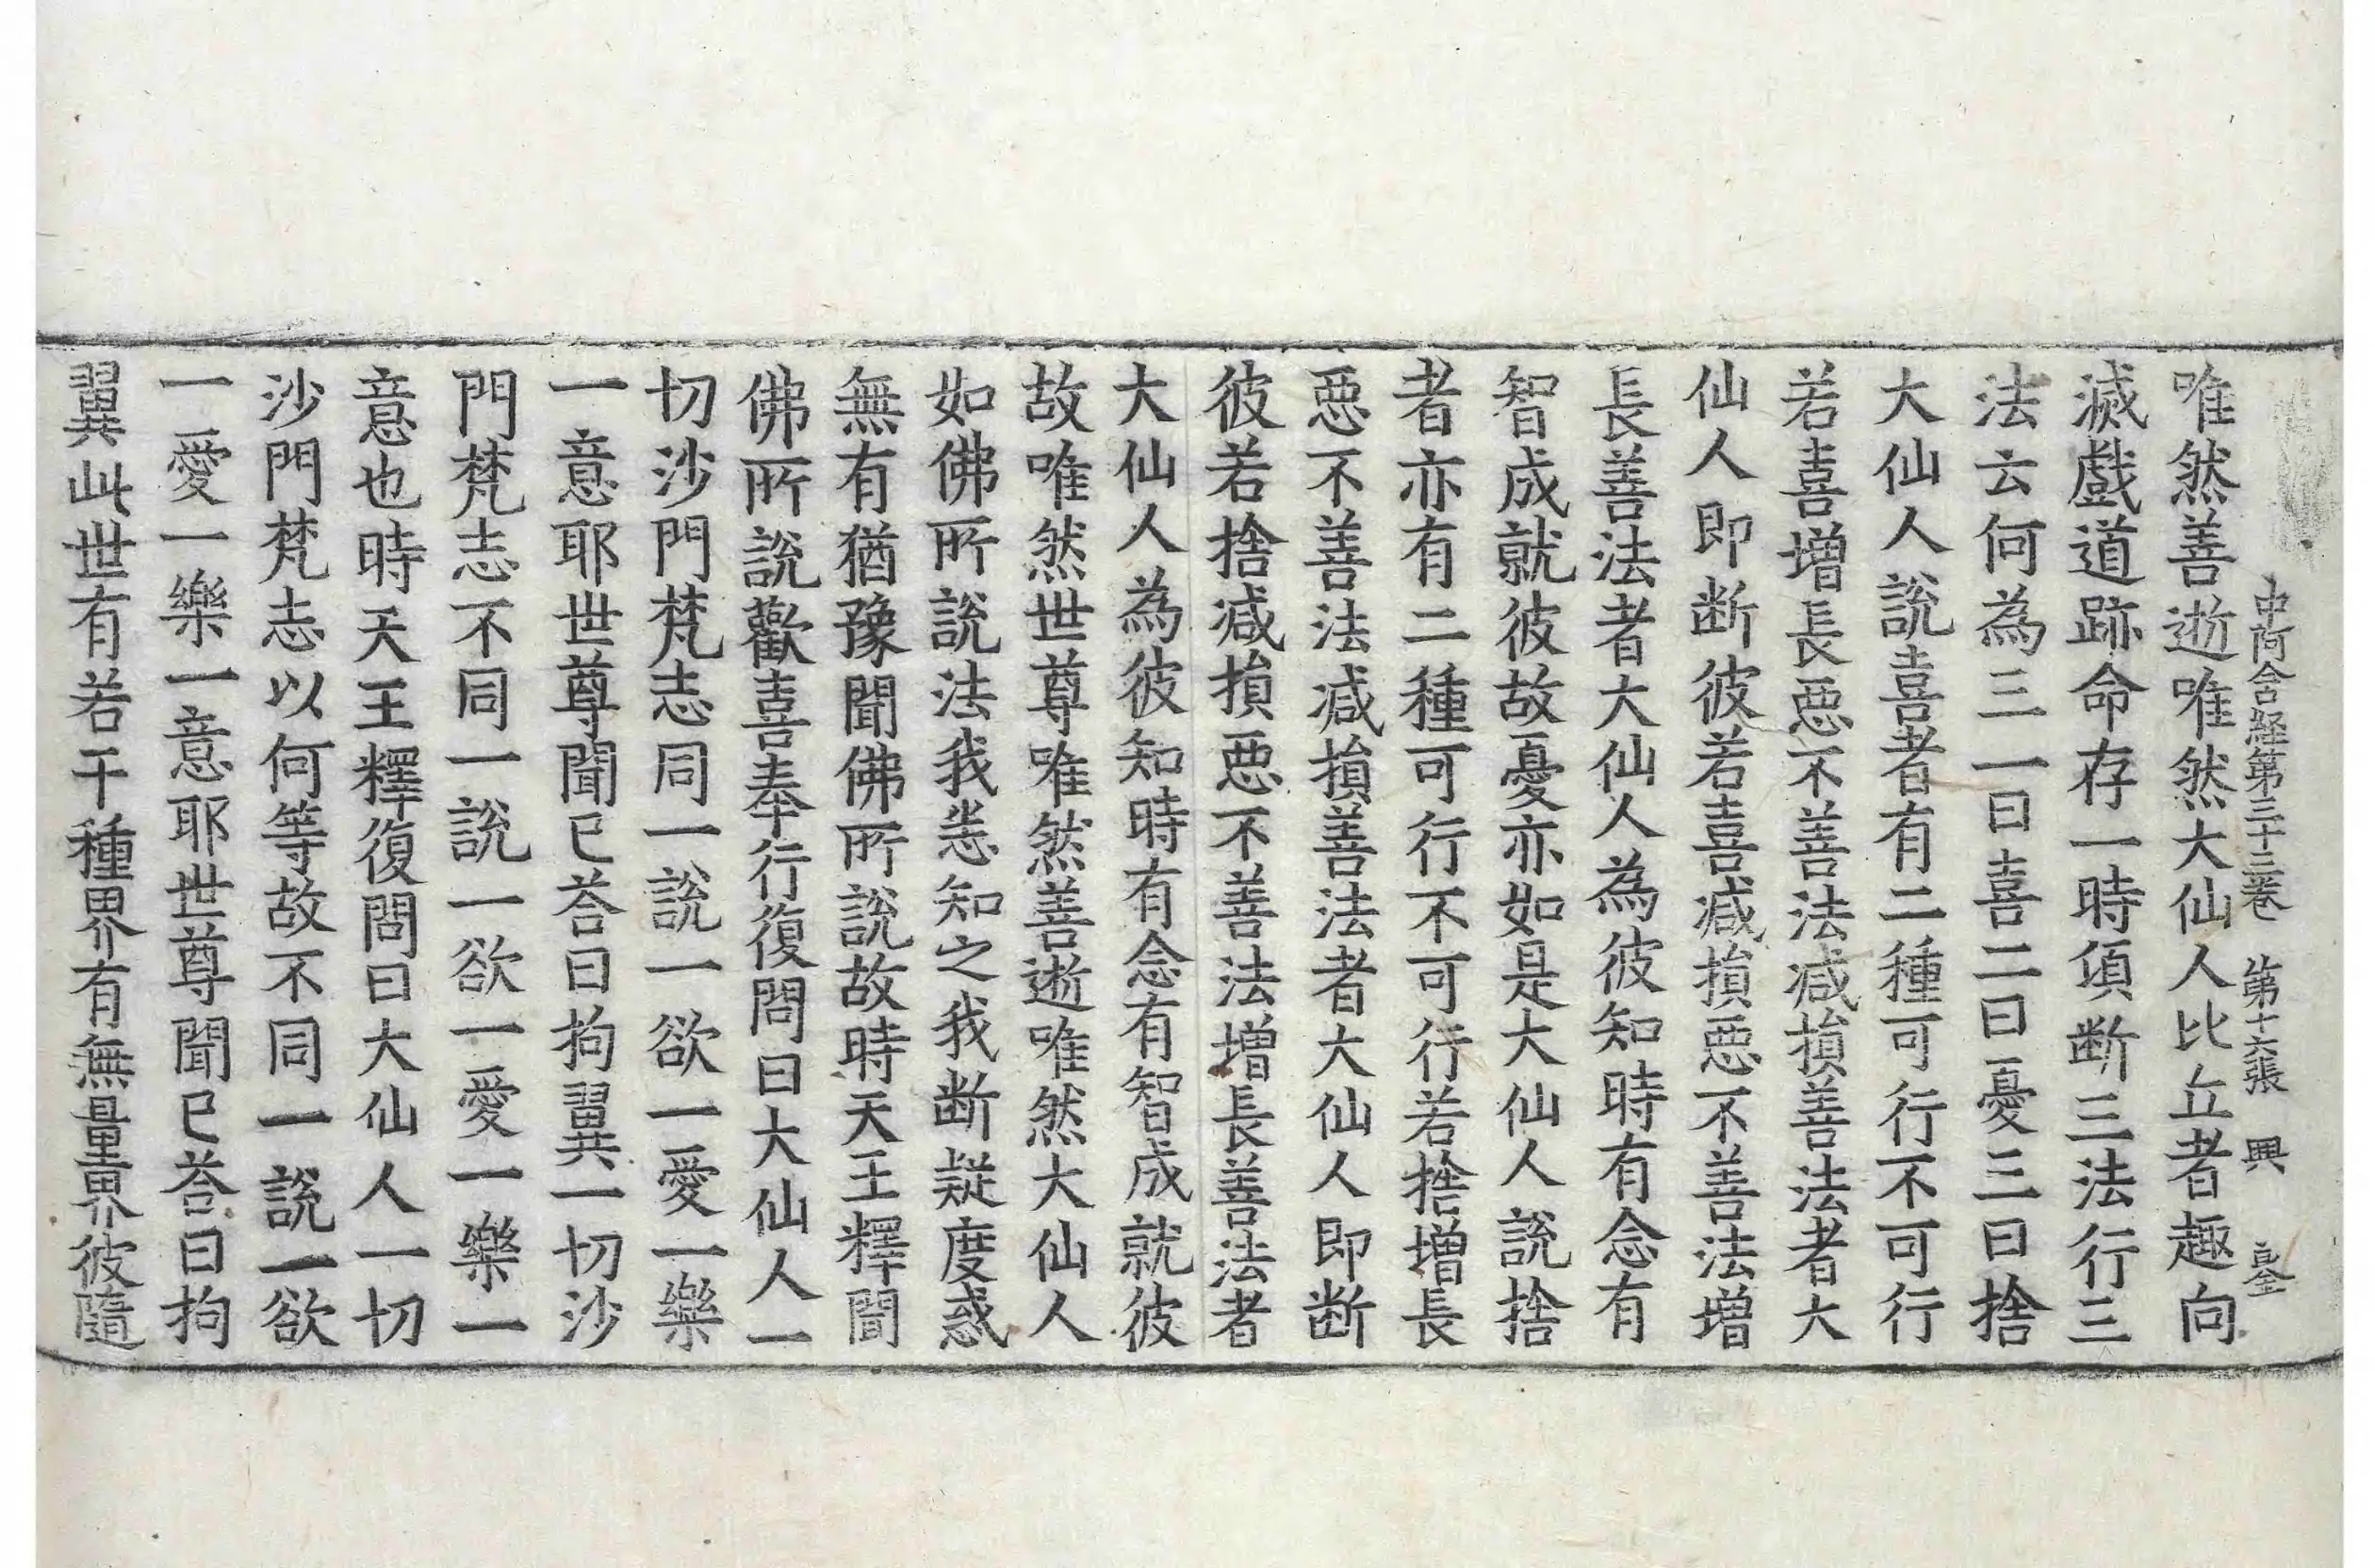 中阿含経第三十三卷 第十六張 興
唯然善逝唯然大仙人比丘者趣向
滅戲道跡命存一時頃断三法行三
法云何為三一曰喜二曰憂三曰捨
大仙人說喜者有二種可行不可行
若喜增長惡不善法减損善法者大
仙人即断彼若喜减損惡不善法增
長善法者大仙人為彼知時有念有
智成就彼故憂亦如是大仙人說捨
者亦有二種可行不可行若捨增長
惡不善法减損善法者大仙人即断
彼若捨减損惡不善法增長善法者
大仙人為彼知時有念有智成就彼
故唯然世尊唯然善逝唯然大仙人
如佛所說法我悉知之我断疑度惑
無有猶豫聞佛所說故時天王釋聞
佛所說歡喜奉行復問曰大仙人一
切沙門梵志同一說一欲一愛一樂
一意耶世尊聞已荅曰拘翼一切沙
門梵志不同一說一欲一愛一樂一
意也時天王釋復問曰大仙人一切
沙門梵志以何等故不同一說一欲
一愛一樂一意耶世尊聞已荅曰拘
翼此世有若干種界有無量界彼隨